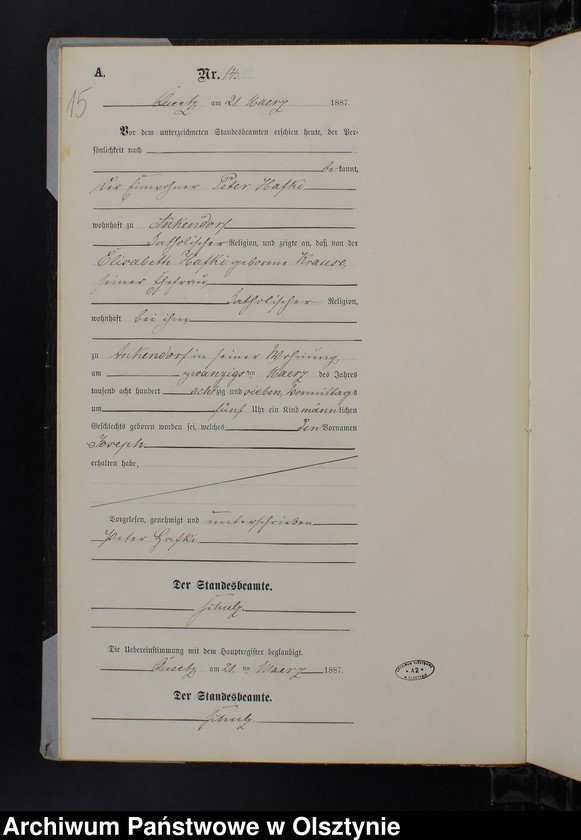 A. Nr. 14.
15
Queetz am 21 Maerz 1887.
Vor dem unterzeichneten Standesbeamten erschien heute, der Per-
sönlichkeit nach
be kannt,
der Einwohner Peter Hafki
wohnhaft zu Ankendorf
katholischer Religion, und zeigte an, daß von der
Elisabeth Hafki geborene Krause,
seiner Ehefrau
katholischer Religion,
wohnhaft bei ihm
zu Ankendorf in seiner Wohnung
am zwanzigsten Maerz des Jahres
tausend acht hundert achtzig und sieben, Vormittags
um fünf Uhr ein Kind männlichen
Geschlechts geboren worden sei, welches den Vornamen
Joseph
erhalten habe,
Vorgelesen, genehmigt und unterschrieben
Peter Hafki
Der Standesbeamte.
Schulz
Die Uebereinstimmung mit dem Hauptregister beglaubigt.
Queetz am 21. ten Maerz 1887.
Der Standesbeamte.
Schulz
* 42 *
Archiwum Państwowe w Olsztynie